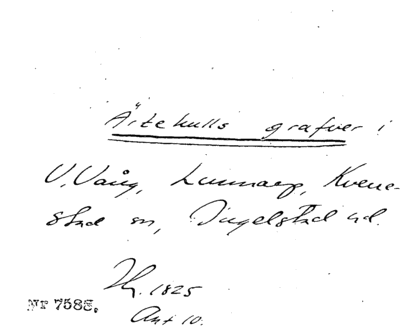 Ärtekulls grafver i
V. Vång, Lunnarp, Kverre-
stad sn, Ingelstad hd.
Th. 1825
Ant 10.
Nr 7585.